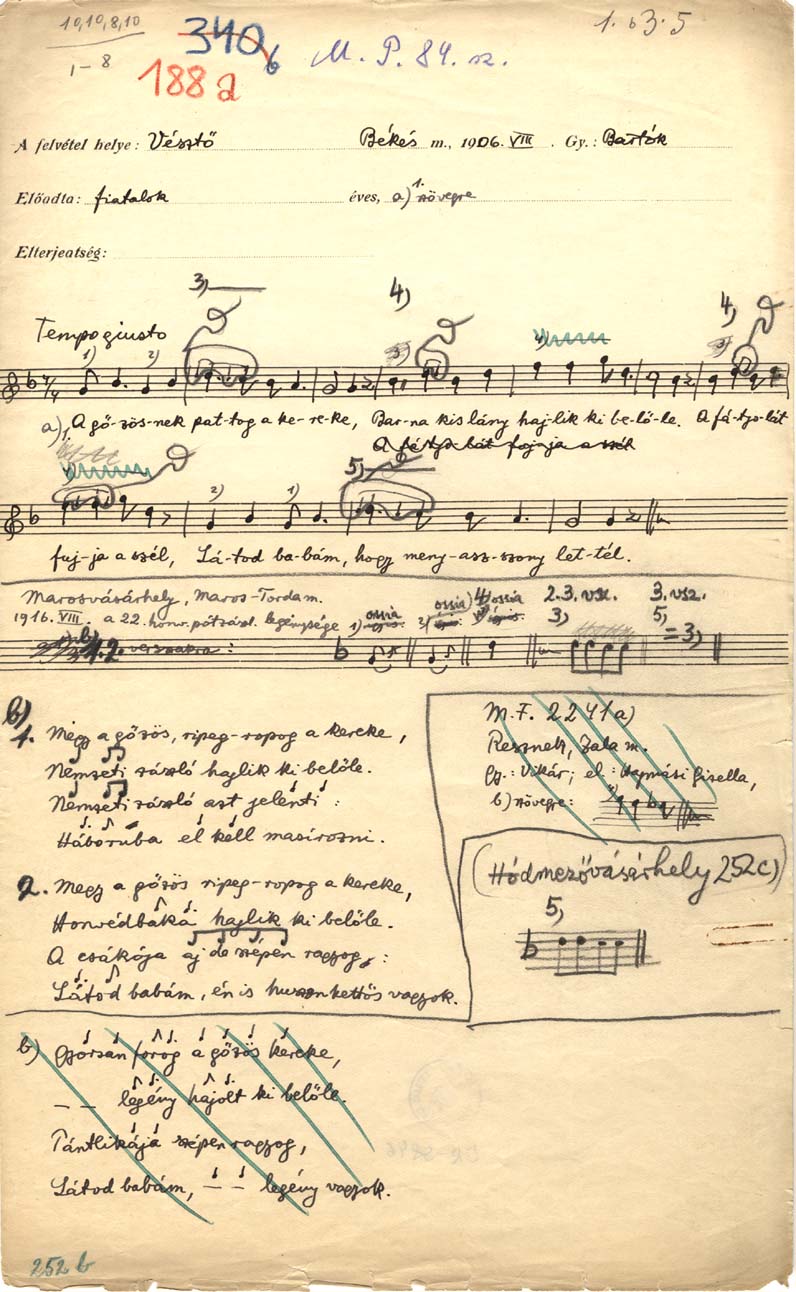 10,10,8,10
1-8
340 b
188 a
M. P. 84. sz.
1. b3. 5
A felvétel helye: Vésztő Békés m., 1906. VIII. Gy.: Bartók
Előadta: fiatalok éves, a) 1. szövegre
Elterjeatség:
3)
4)
4)
Tempo giusto
1) 2)
a) A gő-zös-nek pat-tog a ke-re-ke, Bar-na kis lány haj-lik ki be-lő-le. A fá-tyo-lát
A fátyolát fujja a szél
5)
2) 1)
fuj-ja a szél, Lá-tod ba-bám, hogy meny-asz-szony let-tél.
Marosvásárhely, Maros-Torda m.
1916. VIII. a 22. honv. pótzászl. legénysége 1) ossia 2) ossia 4) ossia 2.3. vsz. 3) 3. vsz. 5) =3)
b)
1. Megy a gőzös, ripeg-ropog a kereke,
Nemzeti zászló hajlik ki belőle.
Nemzeti zászló azt jelenti:
Háborúba el kell masírozni.
2. Megy a gőzös ripeg-ropog a kereke,
Honvédbaka hajlik ki belőle.
A csákója aj de szépen ragyog,
Látod babám, én is huszonkettős vagyok.
M.F. 2241 a)
Resznek, Zala m.
Gy.: Vikár; el: Hajmási Gisella,
b) szövegre:
(Hódmezővásárhely 252 c)
5)
b) Gyorsan forog a gőzös kereke,
– – legény hajolt ki belőle.
Pántlikája szépen ragyog,
Látod babám, – – legény vagyok.
252 b